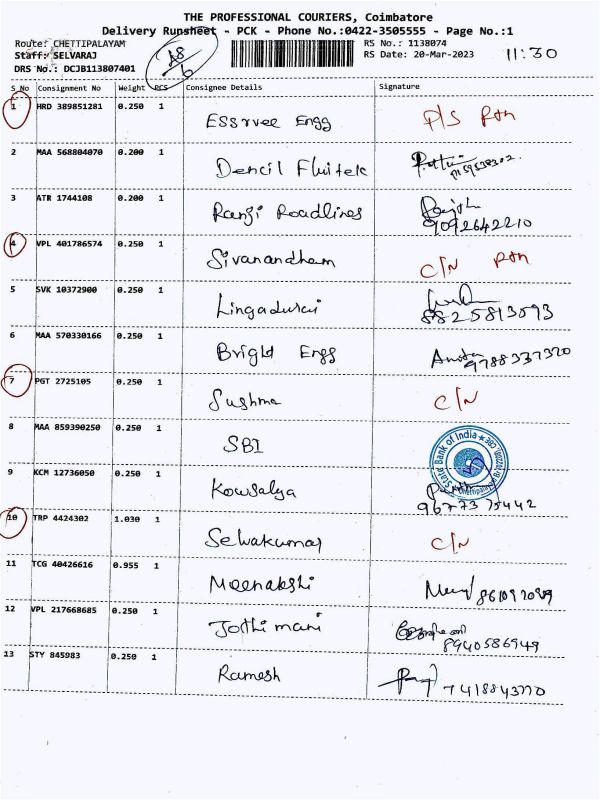 THE PROFESSIONAL COURIERS, Coimbatore
Delivery Runsheet - PCK - Phone No.:0422-3505555 - Page No.:1
Route: CHETTIPALAYAM RS No.: 1138074
Staff: SELVARAJ RS Date: 20-Mar-2023 11:30
DRS No.: DCJB113807401
S_No Consignment No Weight PCS Consignee Details Signature
1 HRD 389851281 0.250 1 Essrvee Engg P/S Rtn
2 MAA 568804070 0.200 1 Dencil Fluitek
3 ATR 1744108 0.200 1 Ranji Roadlines 9092642210
4 VPL 401786574 0.250 1 Sivanandham C/N Rtn
5 SVK 10372900 0.250 1 Lingadurai 8825813593
6 MAA 570330166 0.250 1 Bright Engg 9788337320
7 PGT 2725105 0.250 1 Sushma C/N
8 MAA 859390250 0.250 1 SBI State Bank of India
9 KCM 12736050 0.250 1 Kowsalya 9677375442
10 TRP 4424302 1.030 1 Selvakumar C/N
11 TCG 40426616 0.955 1 Meenakshi
12 VPL 217668685 0.250 1 Jothi mani 8940586949
13 STY 845983 0.250 1 Ramesh 7418843770